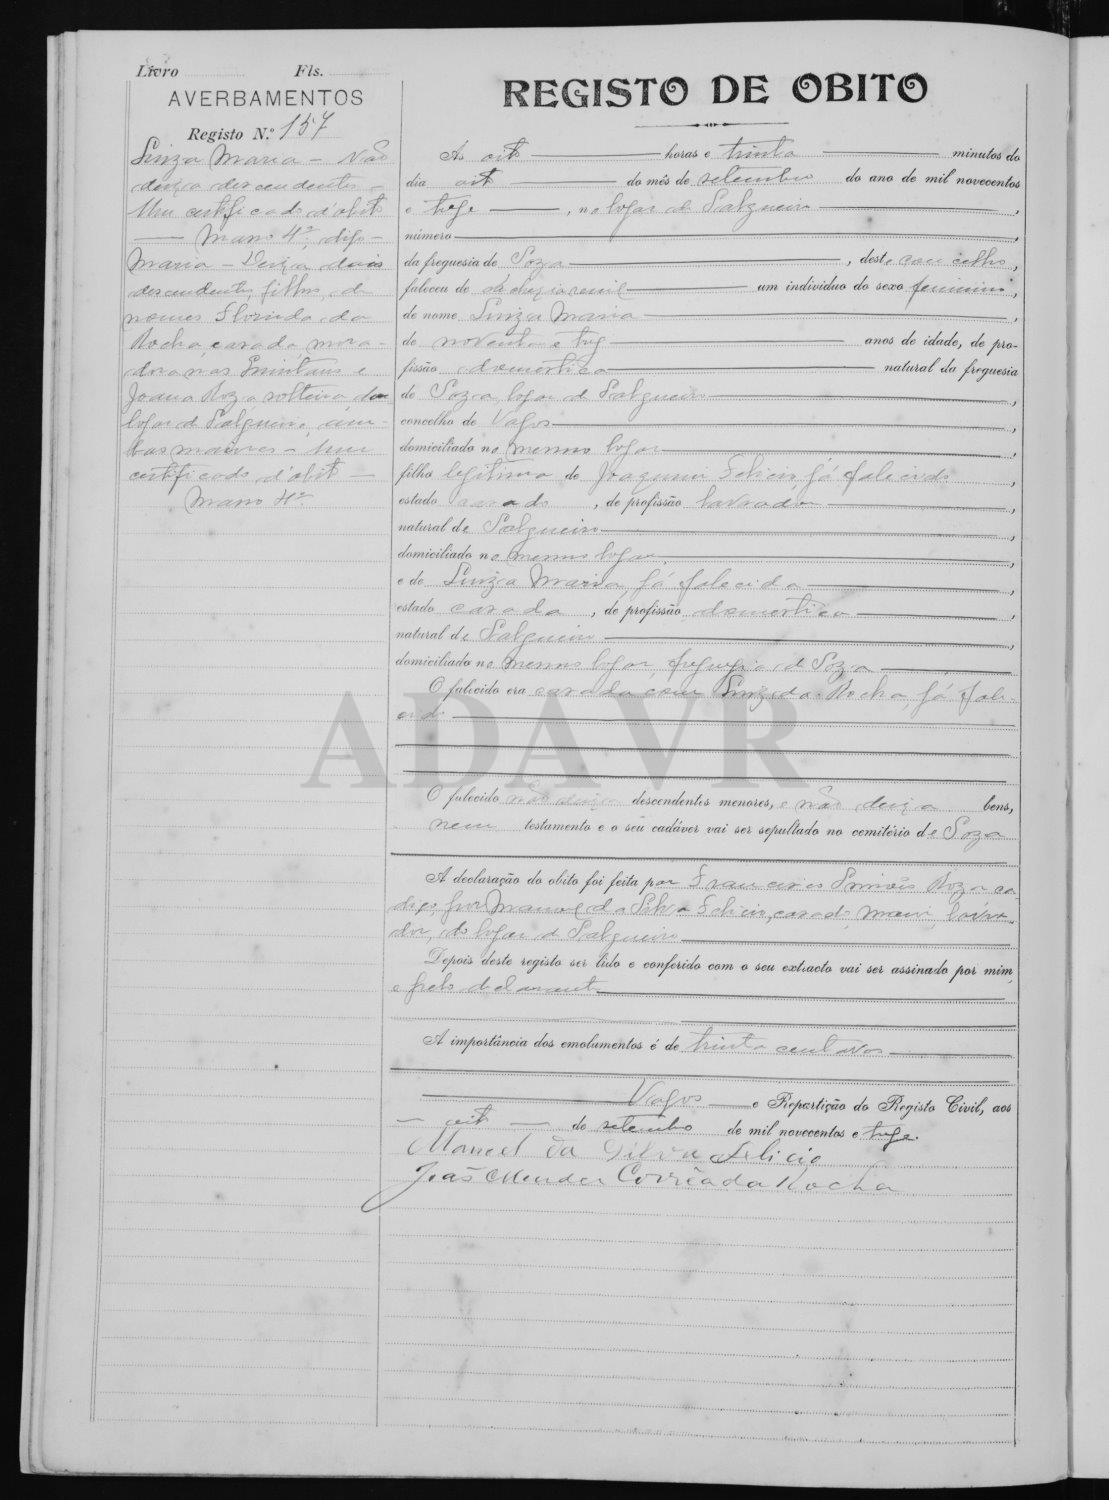 Livro Fls.
AVERBAMENTOS
Registo N.º 157
Luiza Maria - Não
deixa descendentes -
Um certificado d'obito
— Maço 4º, digo -
Maria - Deixa duas
descendentes, filhas, de
nomes Florinda da
Rocha, casada, mora-
dora nas Quintans e
Joana Roza, solteira, do
logar de Salgueiro, am-
bas maiores - Um
certificado d'obito —
Maço 4º
REGISTO DE OBITO
As oito horas e trinta minutos do
dia oito do mês de setembro do ano de mil novecentos
e treze, no logar de Salgueiro,
número
da freguesia de Soza, deste concelho,
faleceu de um individuo do sexo feminino,
de nome Luiza Maria,
de noventa e tres anos de idade, de pro-
fissão domestica natural da freguesia
de Soza, logar de Salgueiro,
concelho de Vagos,
domiciliado no mesmo logar,
filha legitima de Joaquim Felicio, já falecido,
estado casado, de profissão lavrador,
natural de Salgueiro,
domiciliado no mesmo logar,
e de Luiza Maria, já falecida,
estado casada, de profissão domestica,
natural de Salgueiro,
domiciliado no mesmo logar, freguezia de Soza
O falecido era casada com Luiz da Rocha, já fale-
cido
ADAVR
O falecido não deixa descendentes menores, e não deixa bens,
nem testamento e o seu cadáver vai ser sepultado no cemitério de Soza
A declaração do obito foi feita por Francisco Roza
digo, por Manoel da Silva Felicio, casado, maior, lavra-
dor, do logar de Salgueiro
Depois deste registo ser lido e conferido com o seu extracto vai ser assinado por mim,
e pelo declarante
A importância dos emolumentos é de trinta centavos
Vagos e Repartição do Registo Civil, aos
oito de setembro de mil novecentos e treze.
Manoel da Silva Felicio
João Mendes Corrêa da Rocha